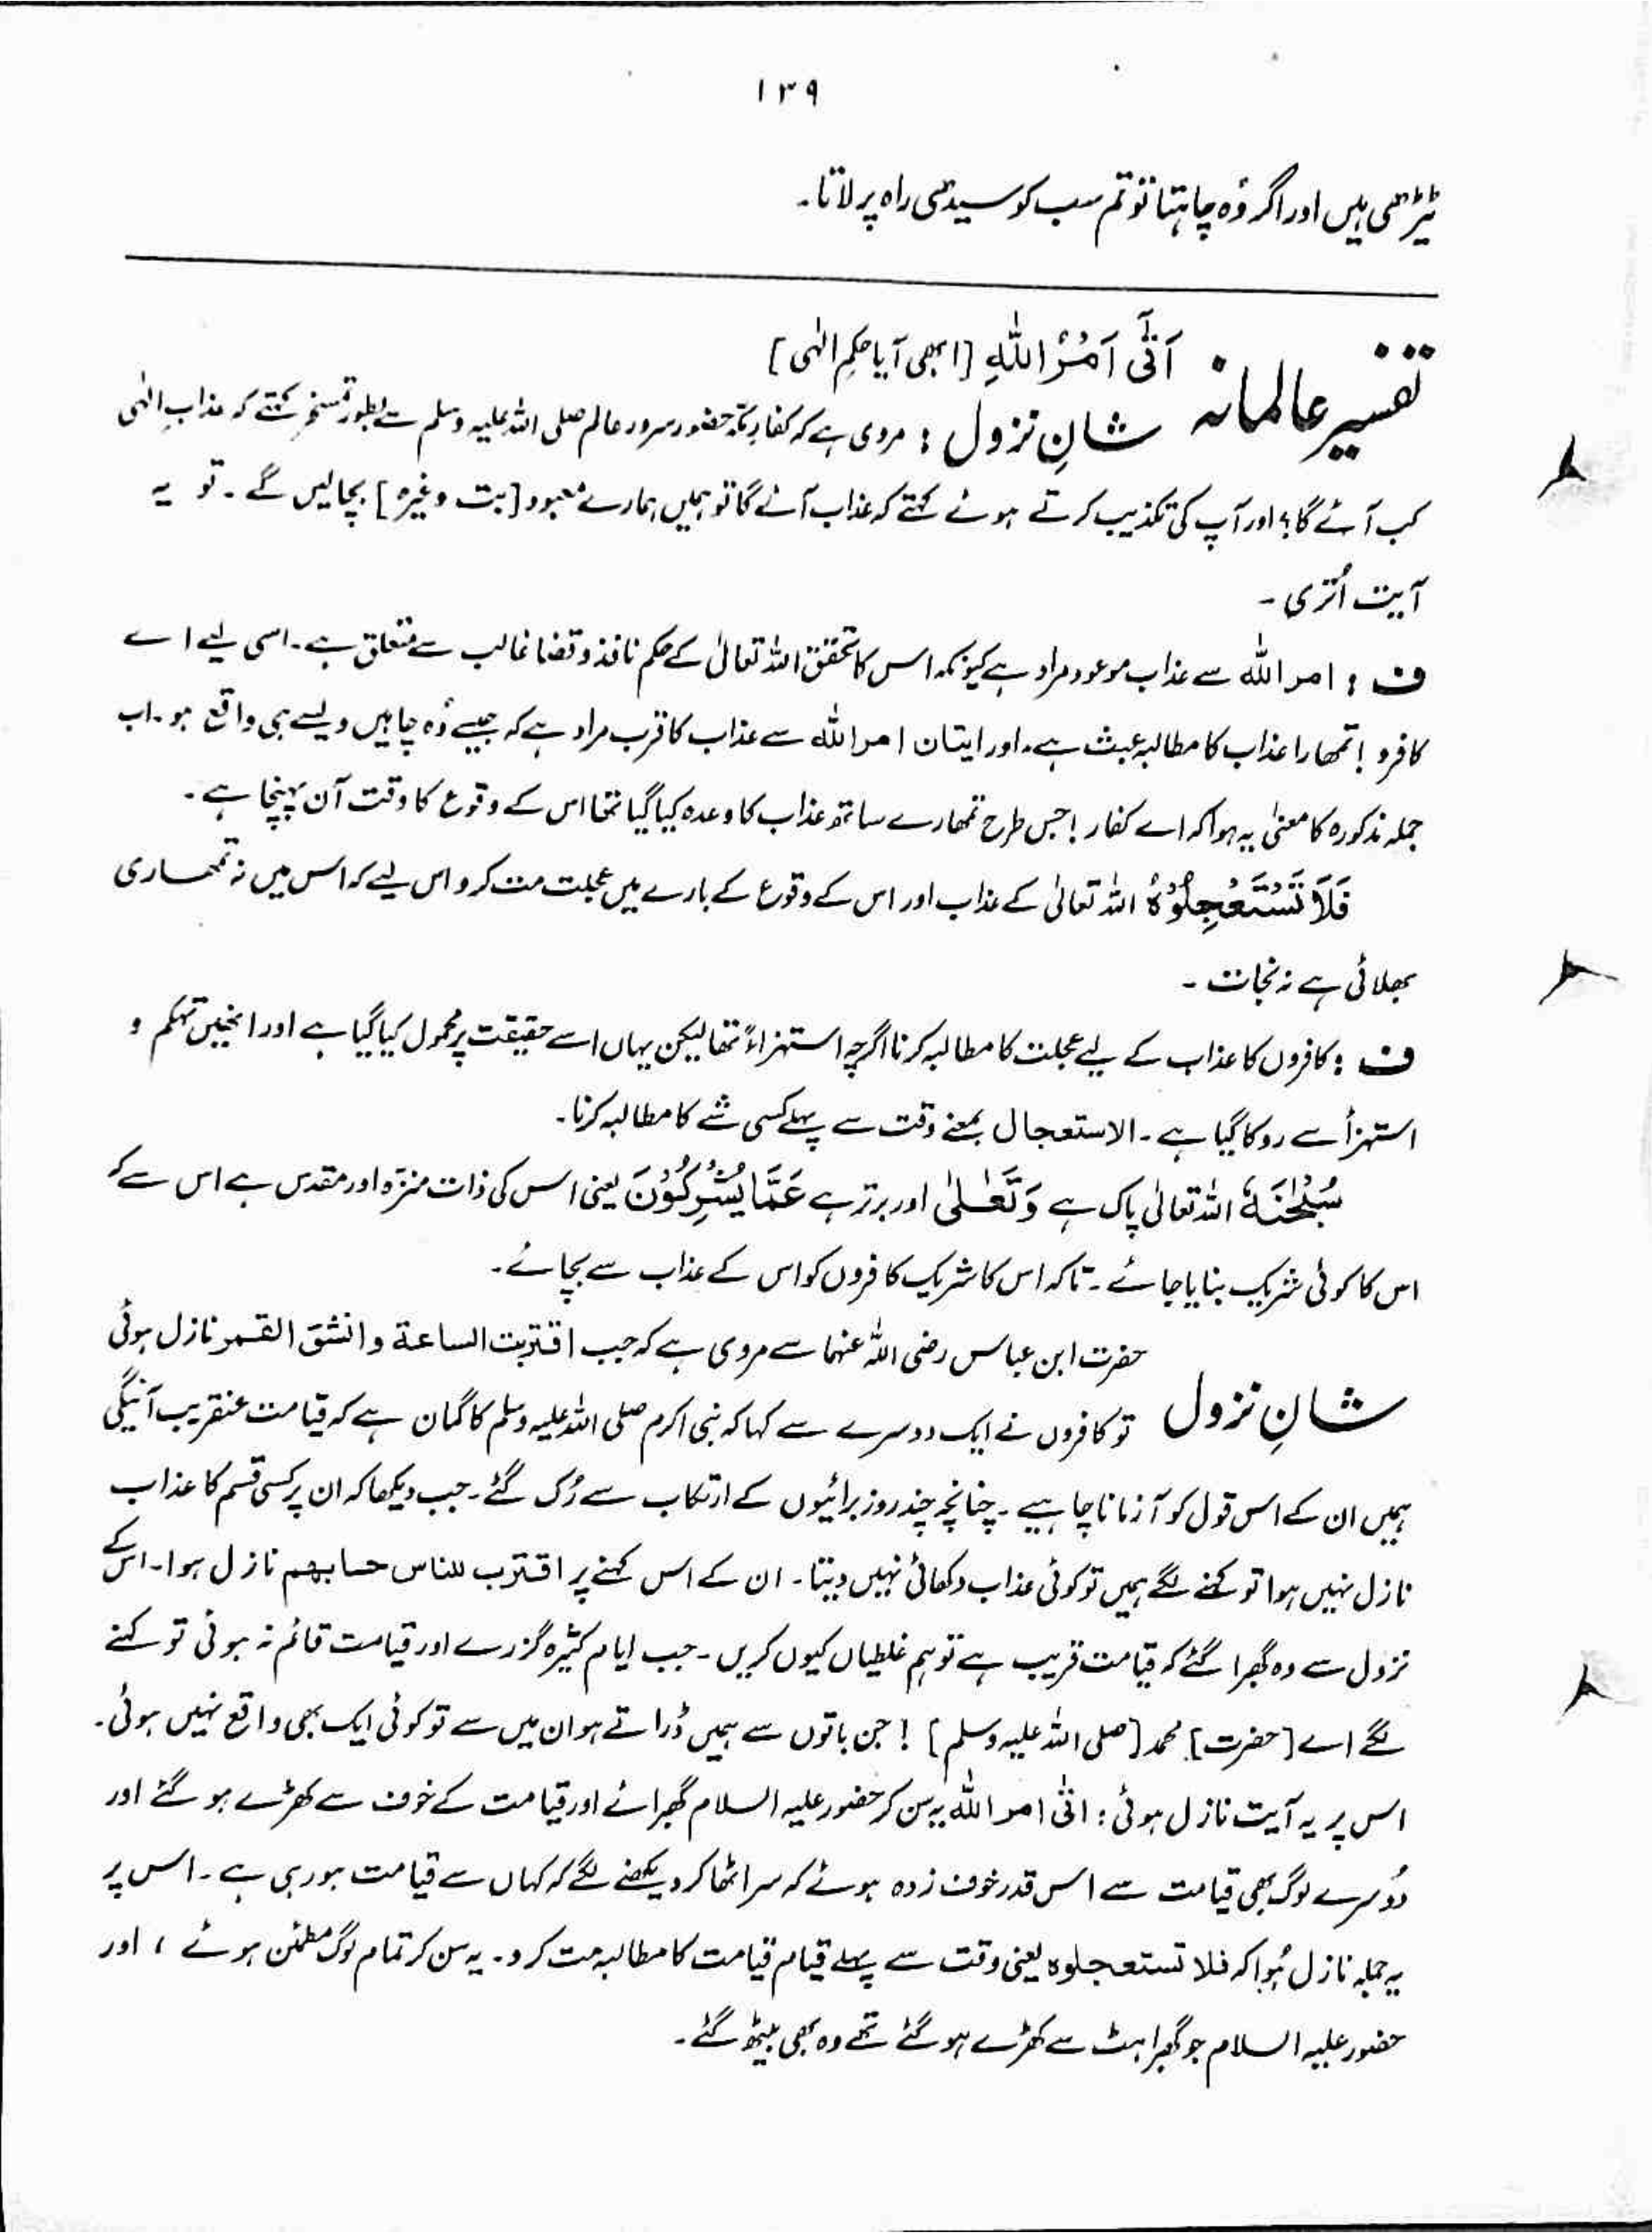 ۱۳۹
ٹیڑھی ہیں اور اگر وُہ چاہتا تو تم سب کو سیدھی راہ پر لاتا۔
تفسیر عالمانہ
اَتٰٓی اَمْرُ اللّٰهِ [ابھی آیا حکمِ الٰہی]
شانِ نزول : مروی ہے کہ کفارِ مکہ حضور سرور عالم صلی اللہ علیہ وسلم سے بطور تمسخر کہتے کہ عذابِ الٰہی
کب آئے گا؟ اور آپ کی تکذیب کرتے ہوئے کہتے کہ عذاب آئے گا تو ہمیں ہمارے معبود [بت وغیرہ] بچا لیں گے ۔ تو یہ
آیت اُتری ۔
ف : امر اللہ سے عذاب موعود مراد ہے کیونکہ اس کا تحقق اللہ تعالٰی کے حکم نافذ و قضا غالب سے متعلق ہے ۔ اسی لیے اے
کافرو ! تمھارا عذاب کا مطالبہ عبث ہے۔ اور ایتان امر اللہ سے عذاب کا قرب مراد ہے کہ جیسے وُہ چاہیں ویسے ہی واقع ہو ۔ اب
جملہ مذکورہ کا معنیٰ یہ ہوا کہ اے کفار ! جس طرح تمھارے ساتھ عذاب کا وعدہ کیا گیا تھا اس کے وقوع کا وقت آن پہنچا ہے ۔
فَلَا تَسْتَعْجِلُوْهُ اللہ تعالٰی کے عذاب اور اس کے وقوع کے بارے میں عجلت مت کرو اس لیے کہ اس میں نہ تمھاری
بھلائی ہے نہ نجات ۔
ف : کافروں کا عذاب کے لیے عجلت کا مطالبہ کرنا اگرچہ استہزاءً تھا لیکن یہاں اسے حقیقت پر محمول کیا گیا ہے اور انھیں تہکم و
استہزأ سے روکا گیا ہے ۔ الاستعجال بمعنے وقت سے پہلے کسی شے کا مطالبہ کرنا۔
سُبْحٰنَهٗ اللہ تعالٰی پاک ہے وَتَعٰلٰی اور برتر ہے عَمَّا یُشْرِکُوْنَ یعنی اس کی ذات منزہ اور مقدس ہے اس سے کہ
اس کا کوئی شریک بنایا جائے ۔ تاکہ اس کا شریک کافروں کو اس کے عذاب سے بچائے ۔
حضرت ابن عباس رضی اللہ عنہما سے مروی ہے کہ جب اقتربت الساعة وانشق القمر نازل ہوئی
شانِ نزول تو کافروں نے ایک دوسرے سے کہا کہ نبی اکرم صلی اللہ علیہ وسلم کا گمان ہے کہ قیامت عنقریب آئیگی
ہمیں ان کے اس قول کو آزمانا چاہیے ۔ چنانچہ چند روز برائیوں کے ارتکاب سے رُک گئے ۔ جب دیکھا کہ ان پر کسی قسم کا عذاب
نازل نہیں ہوا تو کہنے لگے ہمیں تو کوئی عذاب دکھائی نہیں دیتا ۔ ان کے اس کہنے پر اقترب للناس حسابھم نازل ہوا ۔ اس کے
نزول سے وہ گھبرا گئے کہ قیامت قریب ہے تو ہم غلطیاں کیوں کریں ۔ جب ایام کثیرہ گزرے اور قیامت قائم نہ ہوئی تو کہنے
لگے اے [حضرت] محمد [صلی اللہ علیہ وسلم] ! جن باتوں سے ہمیں ڈراتے ہو ان میں سے تو کوئی ایک بھی واقع نہیں ہوئی۔
اس پر یہ آیت نازل ہوئی : اتٰی امر اللہ یہ سن کر حضور علیہ السلام گھبرائے اور قیامت کے خوف سے کھڑے ہو گئے اور
دُوسرے لوگ بھی قیامت سے اس قدر خوف زدہ ہوئے کہ سر اٹھا کر دیکھنے لگے کہ کہاں سے قیامت ہو رہی ہے ۔ اس پر
یہ جملہ نازل ہُوا کہ فلا تستعجلوہ یعنی وقت سے پہلے قیام قیامت کا مطالبہ مت کرو ۔ یہ سن کر تمام لوگ مطمئن ہوئے ، اور
حضور علیہ السلام جو گھبراہٹ سے کھڑے ہو گئے تھے وہ بھی بیٹھ گئے ۔